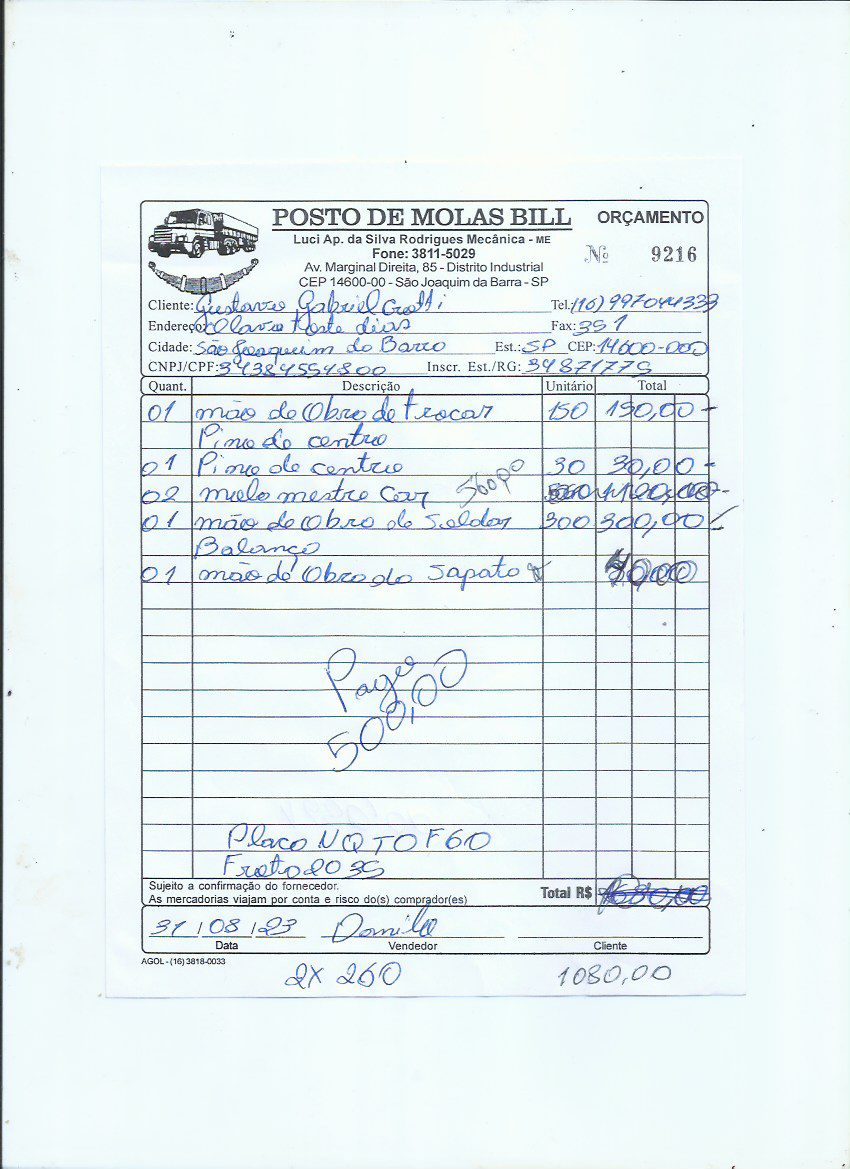 POSTO DE MOLAS BILL ORÇAMENTO
Luci Ap. da Silva Rodrigues Mecânica - ME
Fone: 3811-5029
Nº 9216
Av. Marginal Direita, 85 - Distrito Industrial
CEP 14600-00 - São Joaquim da Barra - SP
Cliente: Gustavo Gabriel Tel. (16) 997044333
Endereço: Olavo dias Fax: 351
Cidade: São Joaquim do Barro Est.: SP CEP: 14600-000
CNPJ/CPF: 34384554800 Inscr. Est./RG: 3487177S
Quant. Descrição Unitário Total
01 mão de Obro de trocar 150 150,00 -
Pino de centro
01 Pino de centro 30 30,00 -
02 mestre 560,00
01 mão de Obro de Soldar 300 300,00
Balanço
01 mão de Obro do Sapato
Pagou
500,00
Placo
Froto 2035
Sujeito a confirmação do fornecedor.
As mercadorias viajam por conta e risco do(s) comprador(es)
Total R$
31 / 08 / 23 Danilo
Data Vendedor Cliente
AGOL - (16) 3818-0033
2X 260 1080,00